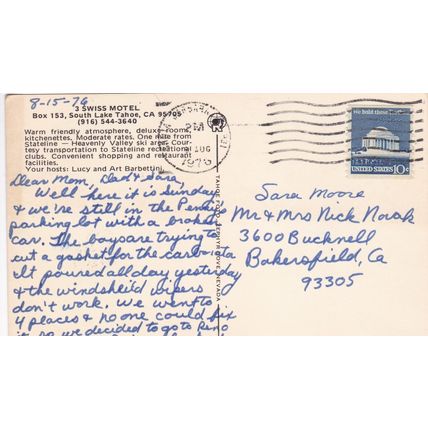 8-15-76
3 SWISS MOTEL
Box 153, South Lake Tahoe, CA 95705
(916) 544-3640
Warm friendly atmosphere, deluxe rooms,
kitchenettes. Moderate rates. One mile from
Stateline — Heavenly Valley ski area. Cour-
tesy transportation to Stateline recreational
clubs. Convenient shopping and restaurant
facilities.
Your hosts: Lucy and Art Barbettini
Dear Mom, Dad & Sara,
Well here it is Sunday
& we're still in the
parking lot with a broken
car. The boys are trying to
cut a gasket for the
It poured all day yesterday
& the windshield wipers
don't work. We went to
4 places & no one could fix
it so we decided to go to Reno
PM
AUG
1976
TAHOE
ZEPHYR COVE, NEVADA
We hold these
UNITED STATES 10c
Sara Moore
Mr & Mrs Nick Novak
3600 Bucknell
Bakersfield, Ca
93305